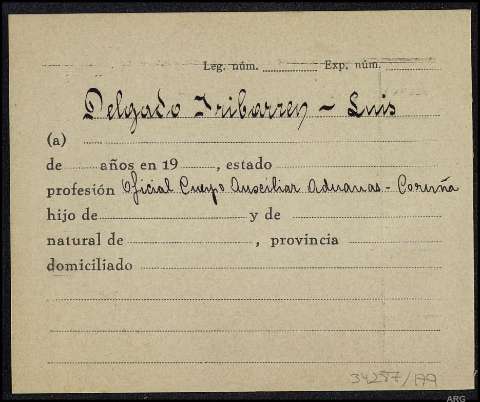 Leg. núm. Exp. núm.
Delgado Iribarren - Luis
(a)
de años en 19 , estado
profesión Oficial Cuerpo Auxciliar Aduanas - Coruña
hijo de y de
natural de , provincia
domiciliado
34257/199
ARG